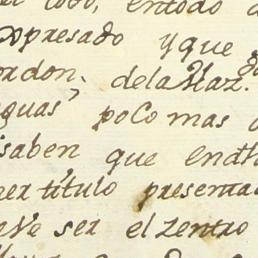 todo, en todo
xpresado y que
ordon, dela Haz.da
guas, poco mas
saben que endh
er titulo presenta
ve ser el zentro